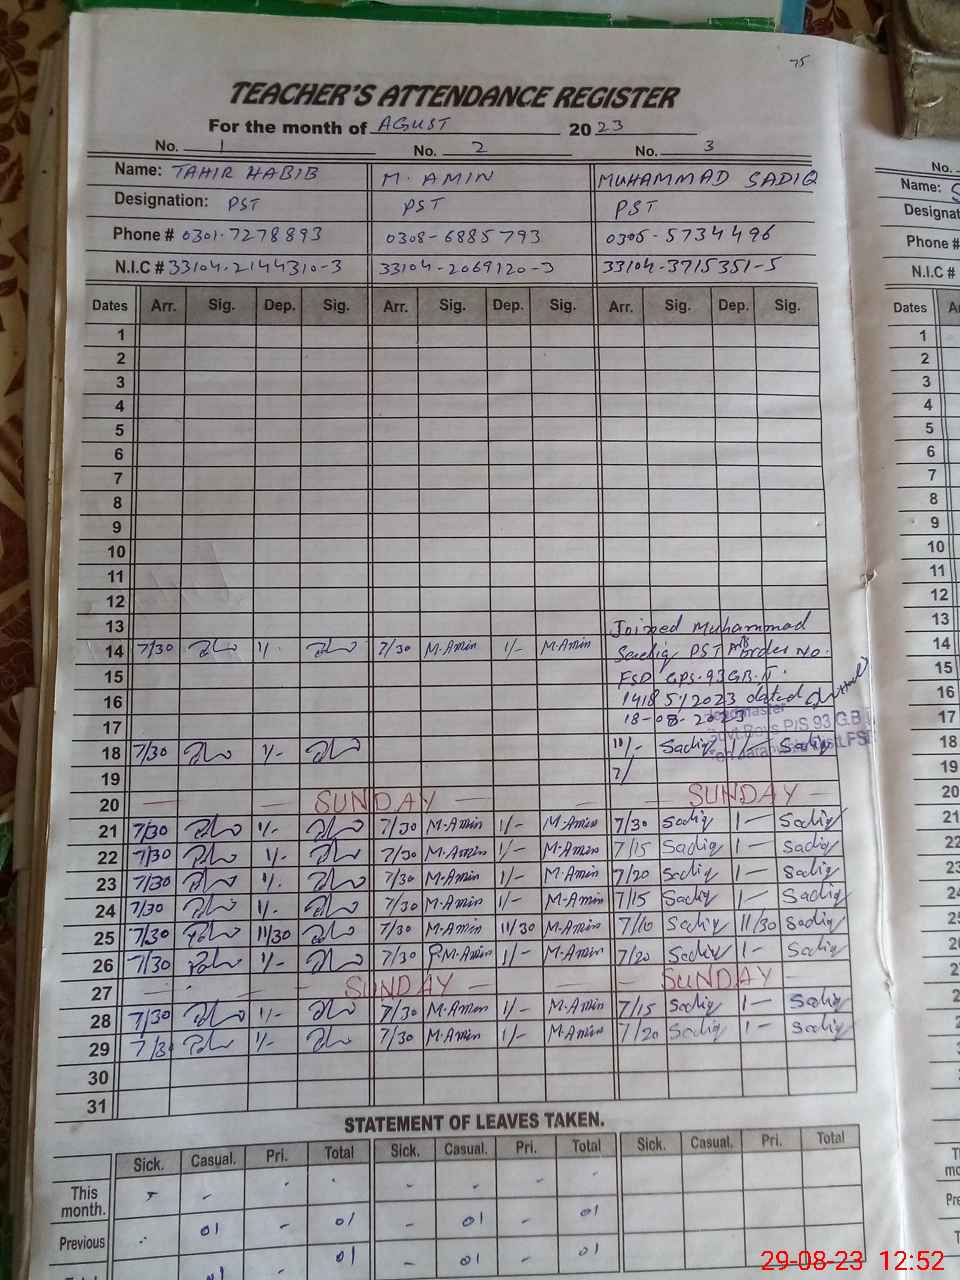 75
TEACHER'S ATTENDANCE REGISTER
For the month of AGUST 2023
No. 1 No. 2 No. 3
Name: TAHIR HABIB M. AMIN MUHAMMAD SADIQ
Designation: PST PST PST
Phone # 0301-7278893 0308-6885793 0305-5734496
N.I.C # 33104-2144310-3 33104-2069120-3 33104-3715351-5
Dates Arr. Sig. Dep. Sig. Arr. Sig. Dep. Sig. Arr. Sig. Dep. Sig.
1
2
3
4
5
6
7
8
9
10
11
12
13 Joined Muhammad
14 7/30 1/- 7/30 M.Amin 1/- M.Amin Sadiq PST order No.
15 FSD GPS.93GB.T.
16 1418 5/2023 dated
17 18-08-2023
Headmaster
Govt Boys P/S 93 G.B
18 7/30 1/- 11/- Sadiq 1/- Sadiq
19 7/
20 — SUNDAY — SUNDAY —
21 7/30 1/- 7/30 M.Amin 1/- M.Amin 7/30 Sadiq 1— Sadiq
22 7/30 1/- 7/30 M.Amin 1/- M.Amin 7/15 Sadiq 1— Sadiq
23 7/30 1/- 7/30 M.Amin 1/- M.Amin 7/20 Sadiq 1— Sadiq
24 7/30 1/- 7/30 M.Amin 1/- M.Amin 7/15 Sadiq 1— Sadiq
25 7/30 11/30 7/30 M.Amin 11/30 M.Amin 7/10 Sadiq 11/30 Sadiq
26 7/30 1/- 7/30 M.Amin 1/- M.Amin 7/20 Sadiq 1— Sadiq
27 — SUNDAY — SUNDAY —
28 7/30 1/- 7/30 M.Amin 1/- M.Amin 7/15 Sadiq 1— Sadiq
29 7/30 1/- 7/30 M.Amin 1/- M.Amin 7/20 Sadiq 1— Sadiq
30
31
STATEMENT OF LEAVES TAKEN.
Sick. Casual. Pri. Total Sick. Casual. Pri. Total Sick. Casual. Pri. Total
This month. - - - - - - - -
Previous - 01 - 01 - 01 - 01
01 - 01 - 01 - 01
No.
Name:
Designat
Phone #
N.I.C #
Dates
1
2
3
4
5
6
7
8
9
10
11
12
13
14
15
16
17
18
19
20
21
22
23
24
25
26
29-08-23 12:52